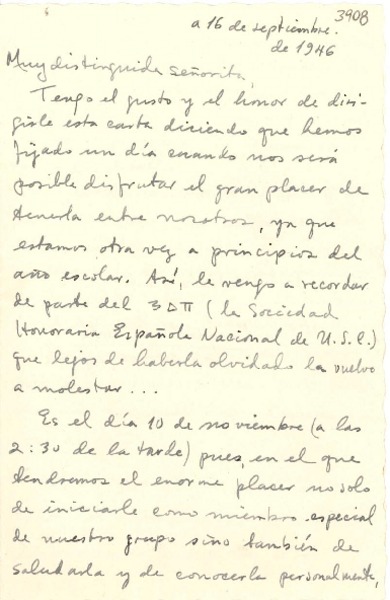 3908
a 16 de septiembre.
de 1946
Muy distinguida señorita,
Tengo el gusto y el honor de diri-
girle esta carta diciendo que hemos
fijado un día cuando nos será
posible disfrutar el gran placer de
tenerla entre nosotros, ya que
estamos otra vez a principios del
año escolar. Así, le vengo a recordar
de parte del ΣΔΠ (la Sociedad
Honoraria Española Nacional de U.S.C.)
que lejos de haberla olvidado la vuelvo
a molestar...
Es el día 10 de noviembre (a las
2:30 de la tarde) pues, en el que
tendremos el enorme placer no solo
de iniciarle como miembro especial
de nuestro grupo sino también de
saludarla y de conocerla personalmente,